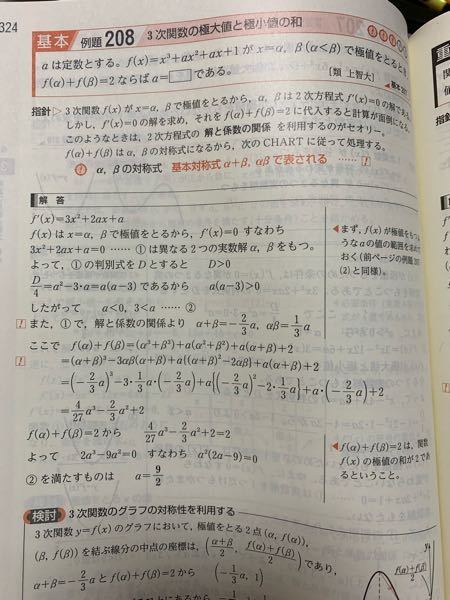 324
基本 例題 208 3次関数の極大値と極小値の和
aは定数とする。f(x)=x³+ax²+ax+1 が x=α, β(α<β) で極値をとるとき
f(α)+f(β)=2 ならば a=□ である。
[類 上智大]
基本 207
指針 ▷ 3次関数 f(x) が x=α, β で極値をとるから，α, β は2次方程式 f′(x)=0 の解である。
しかし，f′(x)=0 の解を求め，それを f(α)+f(β)=2 に代入すると計算が面倒になる。
このようなときは，2次方程式の 解と係数の関係 を利用するのがセオリー。
f(α)+f(β) は α, β の対称式になるから，次の CHART に従って処理する。
α, β の対称式 基本対称式 α+β, αβ で表される ……!
解答
f′(x)=3x²+2ax+a
f(x) は x=α, β で極値をとるから，f′(x)=0 すなわち
3x²+2ax+a=0 …… ① は異なる2つの実数解 α, β をもつ。
よって，①の判別式をDとすると D>0
D/4=a²-3・a=a(a-3) であるから a(a-3)>0
したがって a<0, 3<a …… ②
◀まず，f(x) が極値をもつ
ようなaの値の範囲を求めて
おく(前ページの例題 207
(2) と同様)。
! また，①で，解と係数の関係より α+β=-2/3 a, αβ=1/3 a
ここで f(α)+f(β)=(α³+β³)+a(α²+β²)+a(α+β)+2
! =(α+β)³-3αβ(α+β)+a{(α+β)²-2αβ}+a(α+β)+2
=(-2/3 a)³-3・1/3 a・(-2/3 a)+a{(-2/3 a)²-2・1/3 a}+a・(-2/3 a)+2
=4/27 a³-2/3 a²+2
f(α)+f(β)=2 から 4/27 a³-2/3 a²+2=2
よって 2a³-9a²=0 すなわち a²(2a-9)=0
② を満たすものは a=9/2
◀f(α)+f(β)=2 は，関数
f(x) の極値の和が2であ
るということ。
検討 3次関数のグラフの対称性を利用する
3次関数 y=f(x) のグラフにおいて，極値をとる2点 (α, f(α)),
(β, f(β)) を結ぶ線分の中点の座標は，((α+β)/2, (f(α)+f(β))/2) であり，
α+β=-2/3 a と f(α)+f(β)=2 から (-1/3 a, 1)